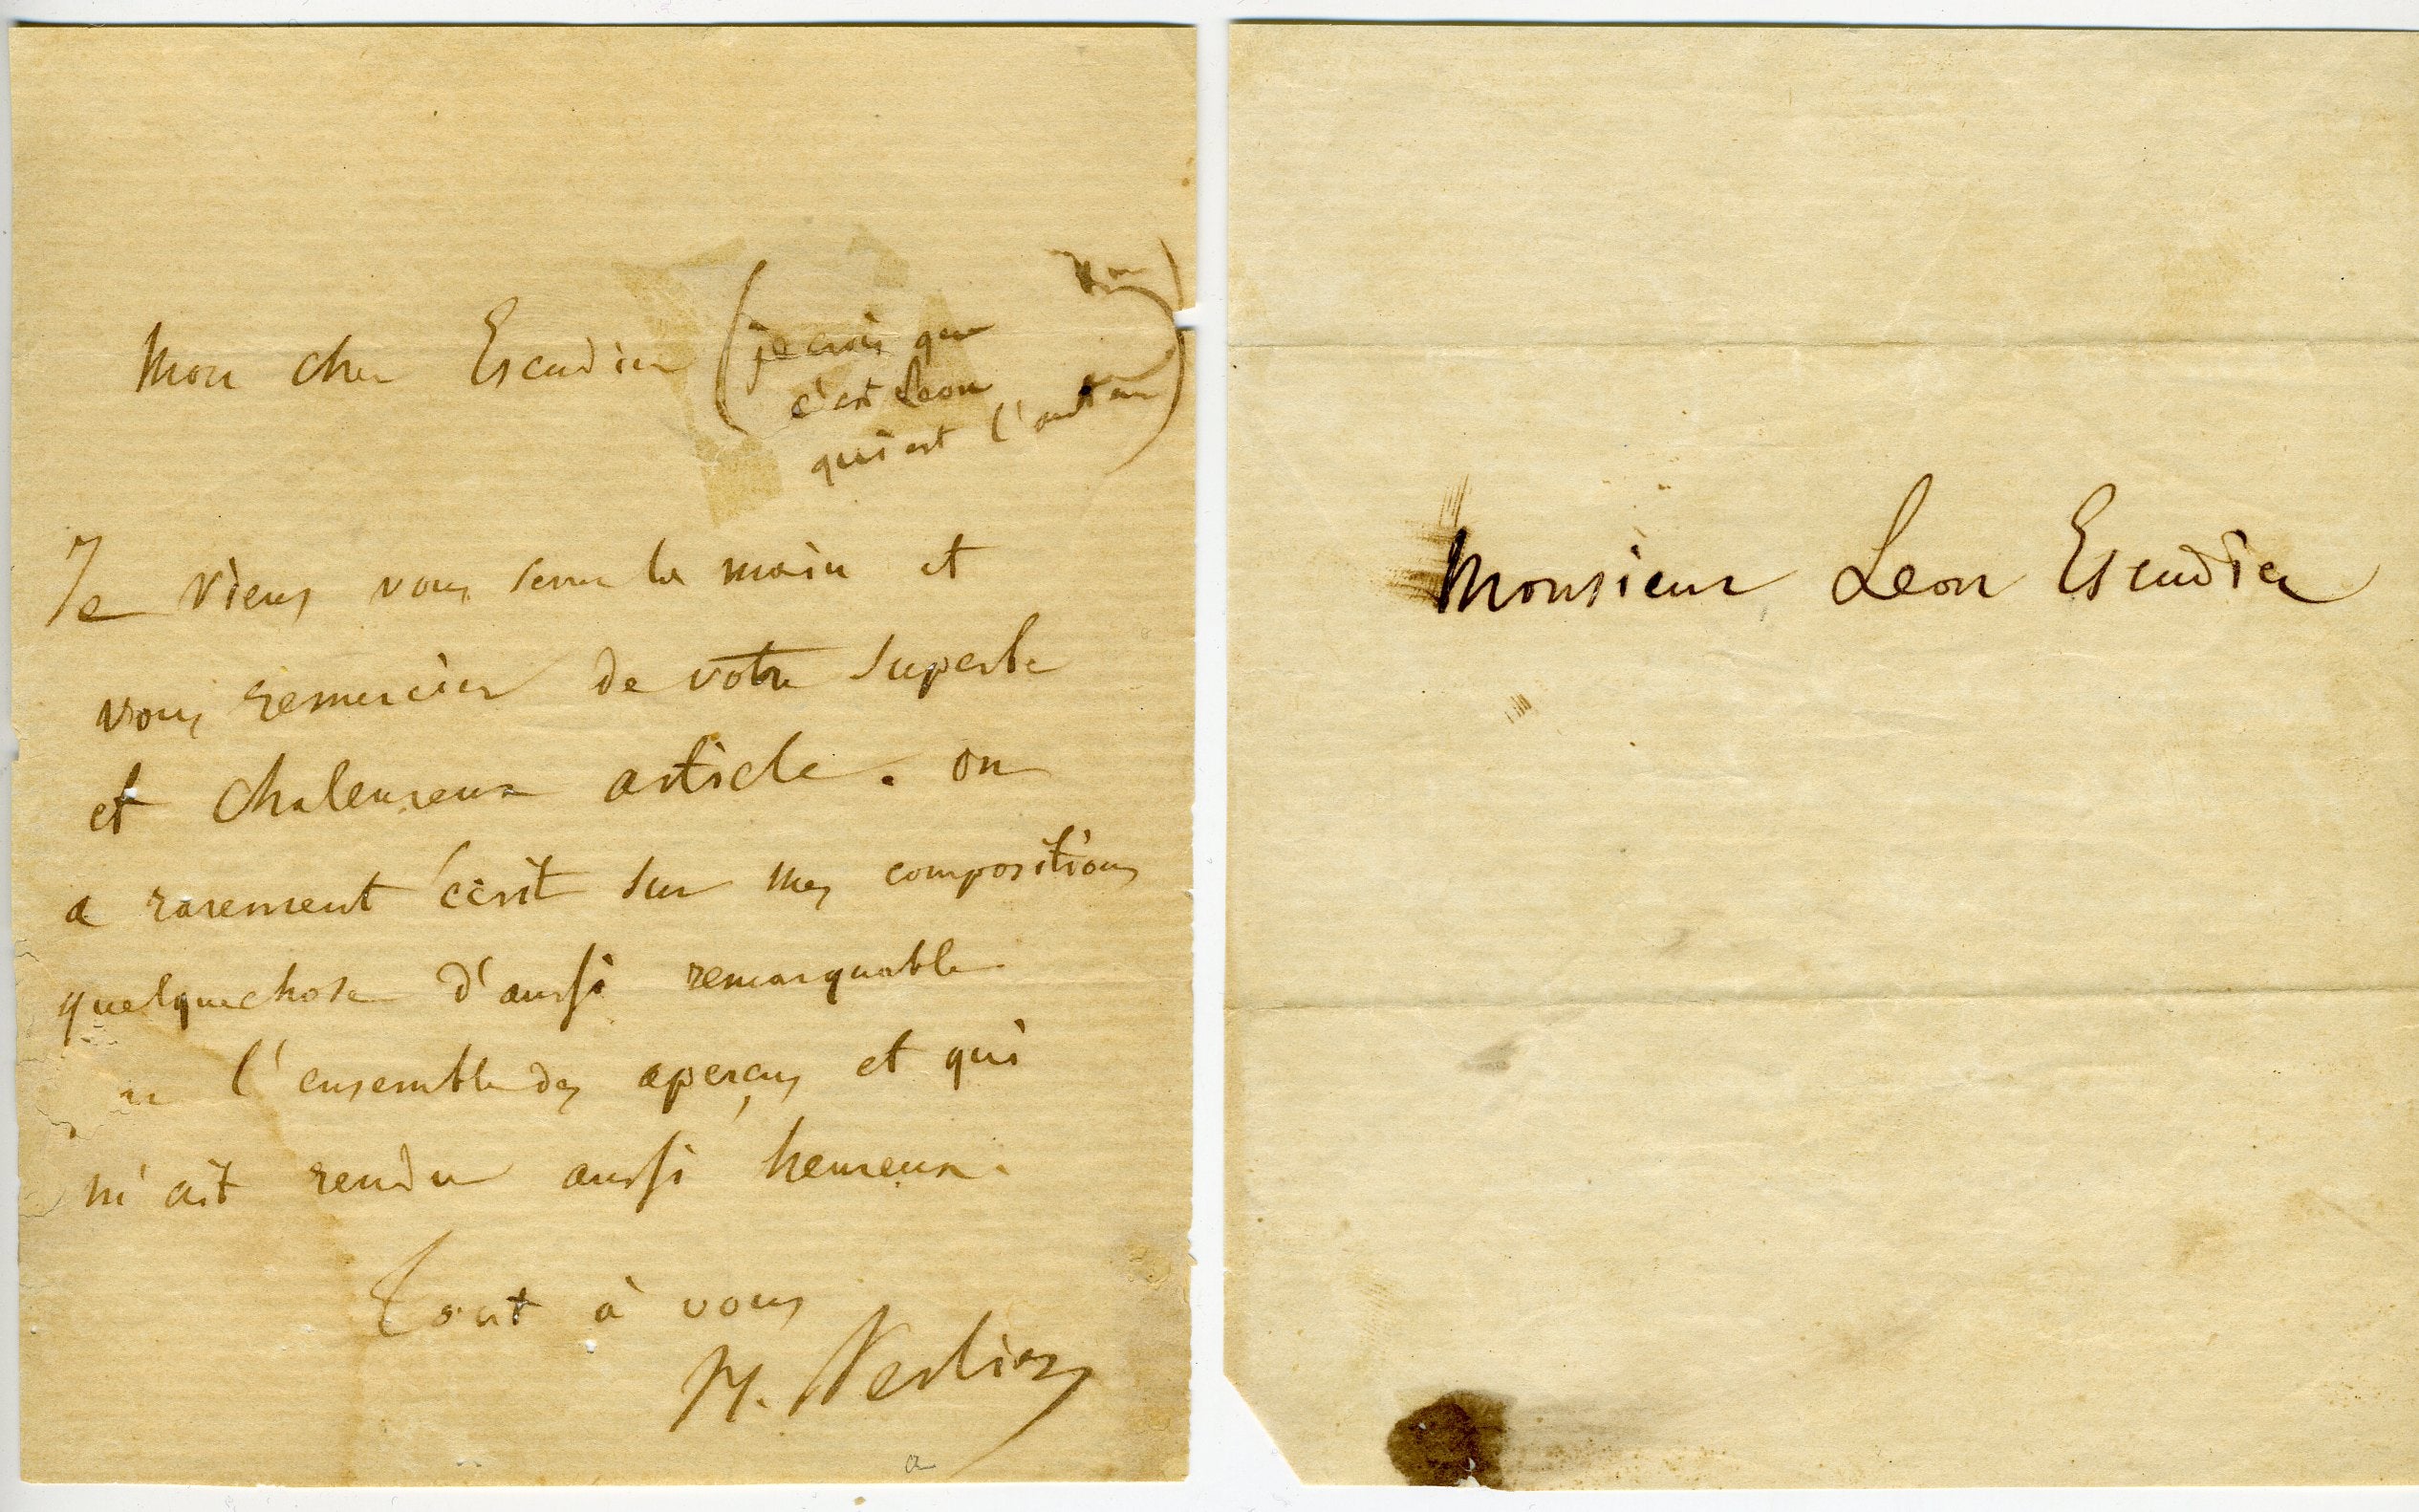 Mon cher Escudier (je crois que
c'est Leon
qui est l'auteur)
Je viens vous serrer la main et
vous remercier de votre superbe
et chaleureux article. on
a rarement écrit sur mes compositions
quelquechose d'aussi remarquable
l'ensemble des aperçus et qui
m'ait rendu aussi heureux.
Tout à vous
H. Berlioz
Monsieur Leon Escudier